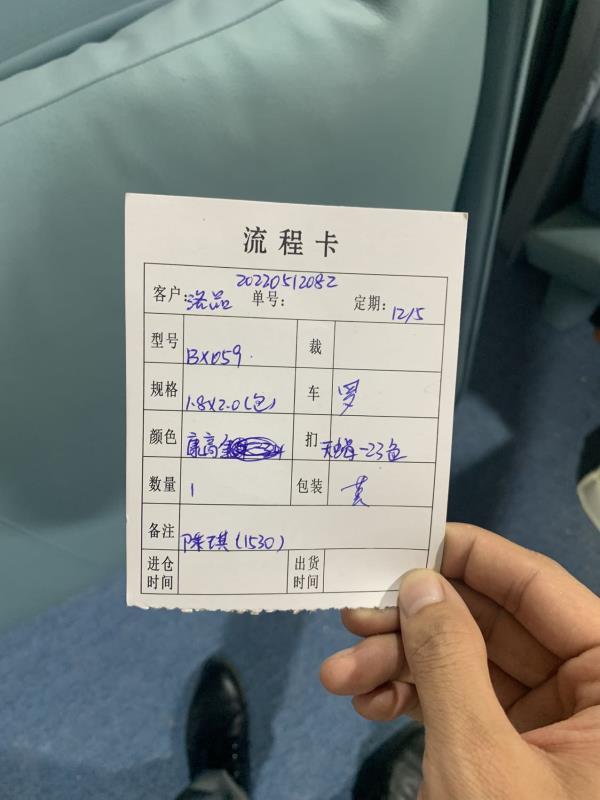 流程卡
20220512082
客户: 洛品 单号: 定期: 12/5
型号 BX059. 裁
规格 1.8X2.0(包) 车 罗
颜色 康高 扪 -23色
数量 1 包装 黄
备注 陈琪(1530)
进仓时间 出货时间